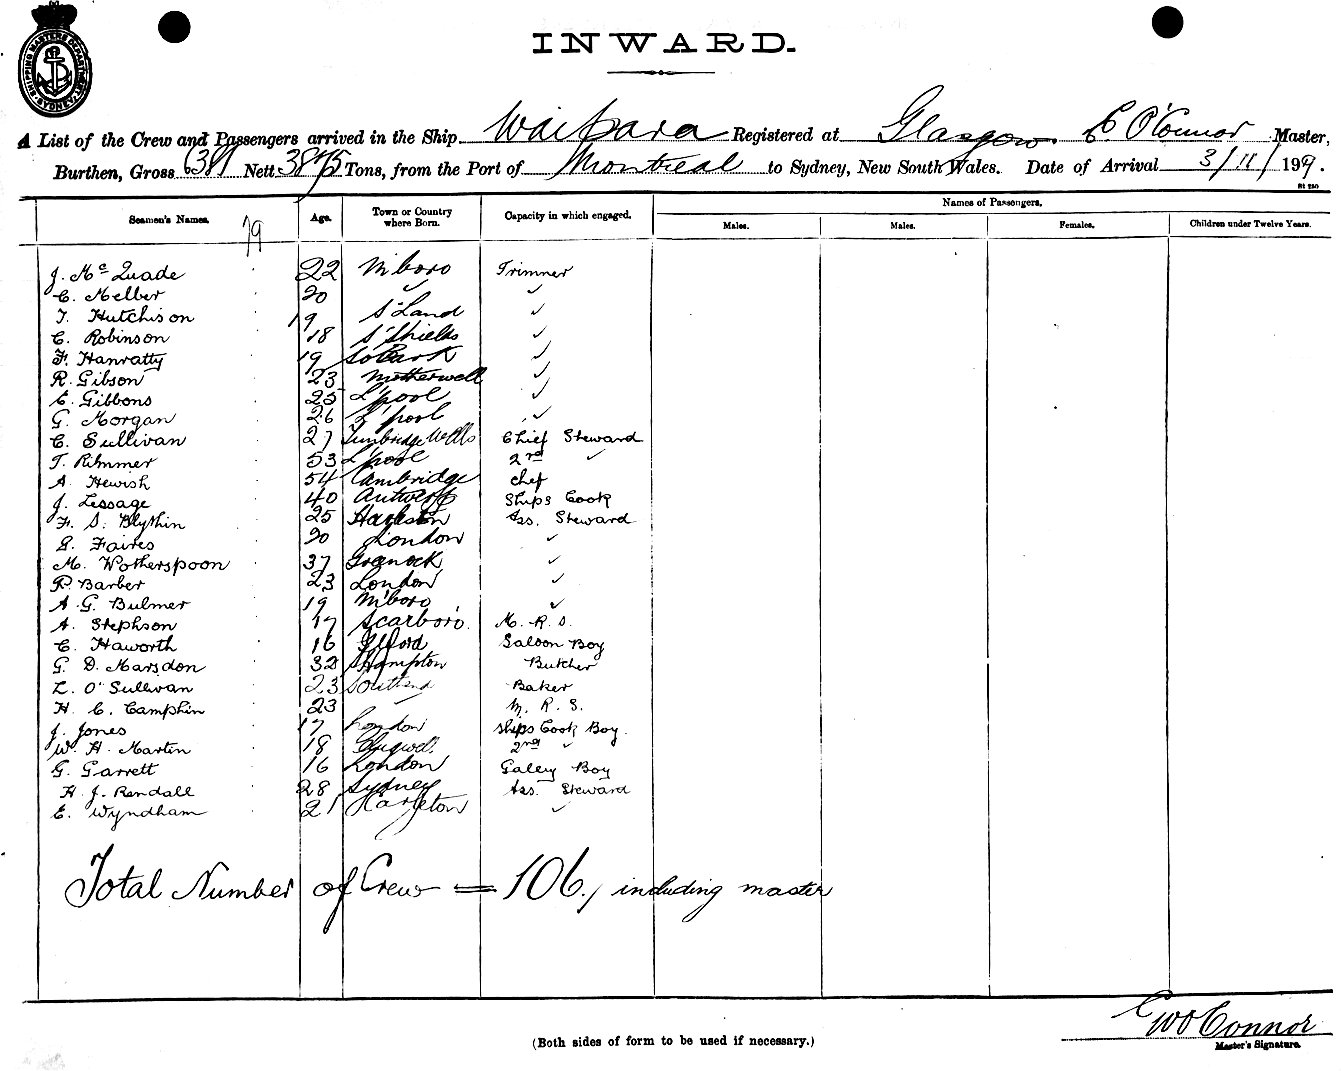 SHIPPING MASTERS DEPARTMENT SYDNEY
INWARD.
A List of the Crew and Passengers arrived in the Ship Waipara Registered at Glasgow. C O'Connor Master,
Burthen, Gross 6381 Nett 3875 Tons, from the Port of Montreal to Sydney, New South Wales. Date of Arrival 3/11/199.
Seamen's Names. 79 Age. Town or Country where Born. Capacity in which engaged. Names of Passengers.
Males. Males. Females. Children under Twelve Years.
J. McQuade 22 M'boro Trimmer
C. Melber 20 ✓ ✓
T. Hutchison 19 S'Land ✓
C. Robinson 18 S'Shields ✓
F. Hanratty 19 ✓
R. Gibson 23 Motherwell ✓
E. Gibbons 25 L'pool ✓
G. Morgan 26 L'pool ✓
C. Sullivan 27 Tunbridge Wells Chief Steward
T. Rimmer 53 L'pool 2nd ✓
A. Hewish 54 Cambridge Chef
J. Lessage 40 Antwerp Ships Cook
F. S. Blythin 25 Ass. Steward
G. Faires 20 London ✓
M. Wotherspoon 37 Greenock ✓
R. Barber 23 London ✓
A. G. Bulmer 19 M'boro ✓
A. Stephson 17 Scarboro. M. R. S.
C. Haworth 16 Ilford Saloon Boy
G. D. Marsdon 32 S'Hampton Butcher
L. O'Sullivan 23 Southend Baker
H. C. Camphin 23 M. R. S.
J. Jones 17 London Ships Cook Boy.
W. H. Martin 18 2nd ✓
G. Garrett 16 London Galey Boy
H. J. Rendall 28 Sydney Ass. Steward
E. Wyndham 21 Harleton ✓
Total Number of Crew = 106, including master
C W O'Connor
Master's Signature.
(Both sides of form to be used if necessary.)